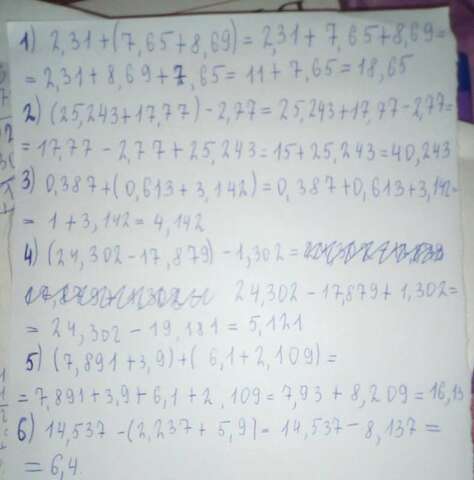 1) 2,31+(7,65+8,69)=2,31+7,65+8,69=
=2,31+8,69+7,65=11+7,65=18,65
2) (25,243+17,77)-2,77=25,243+17,77-2,77=
=17,77-2,77+25,243=15+25,243=40,243
3) 0,387+(0,613+3,142)=0,387+0,613+3,142=
=1+3,142=4,142
4) (24,302-17,879)-1,302=
24,302-17,879+1,302=
=24,302-19,181=5,121
5) (7,891+3,9)+(6,1+2,109)=
=7,891+3,9+6,1+2,109=7,93+8,209=16,13
6) 14,537-(2,237+5,9)=14,537-8,137=
=6,4